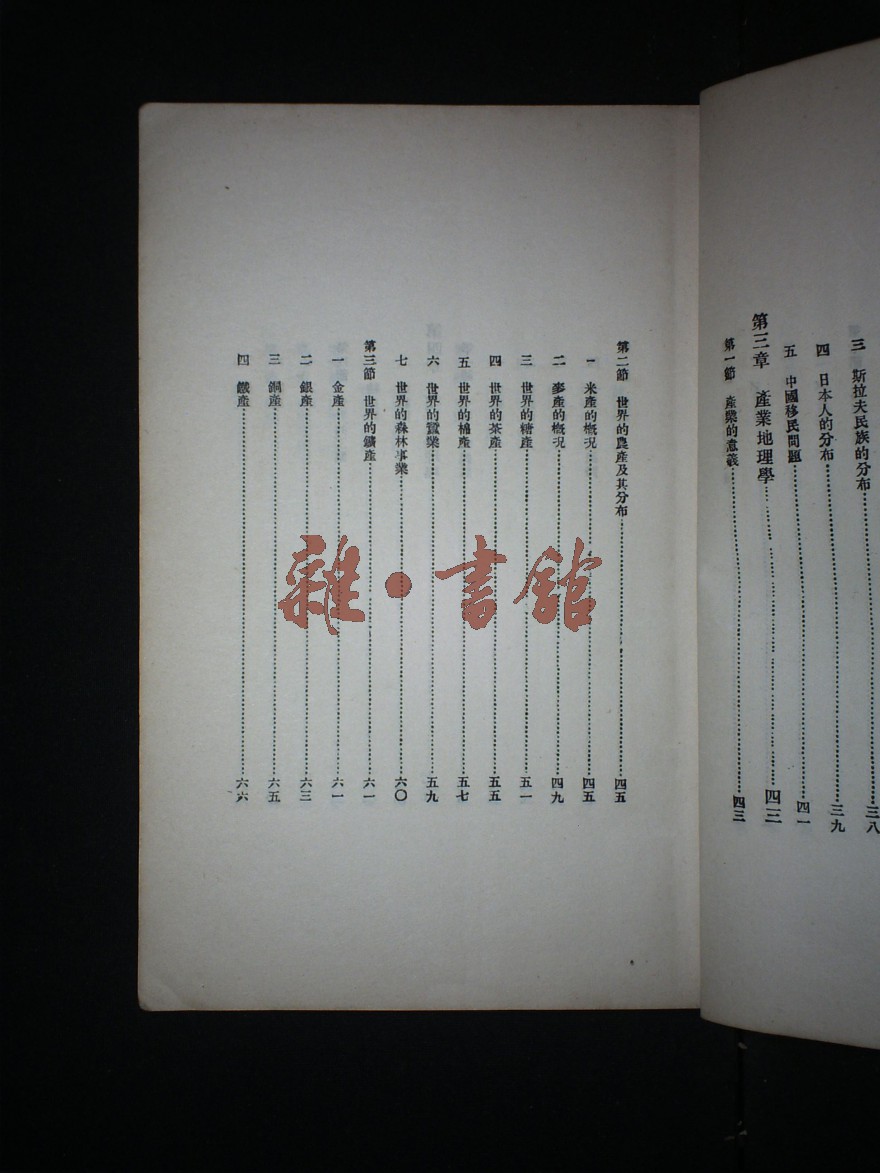 三　斯拉夫民族的分布……三八
四　日本人的分布……三九
五　中國移民問題……四一
第三章　產業地理學……四三
第一節　產業的意義……四三
第二節　世界的農產及其分布……四五
一　米產的概况……四五
二　麥產的概况……四九
三　世界的糖產……五一
四　世界的茶產……五五
五　世界的棉產……五七
六　世界的蠶業……五九
七　世界的森林事業……六〇
第三節　世界的鑛產……六一
一　金產……六一
二　銀產……六三
三　銅產……六五
四　鐵產……六六
雜·書館